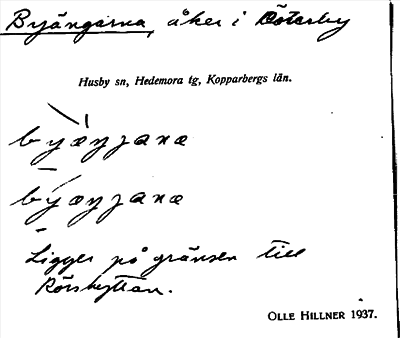 Byängarna, åker i Österby
Husby sn, Hedemora tg, Kopparbergs län.
Ligger på gränsen till
Rörshyttan.
OLLE HILLNER 1937.